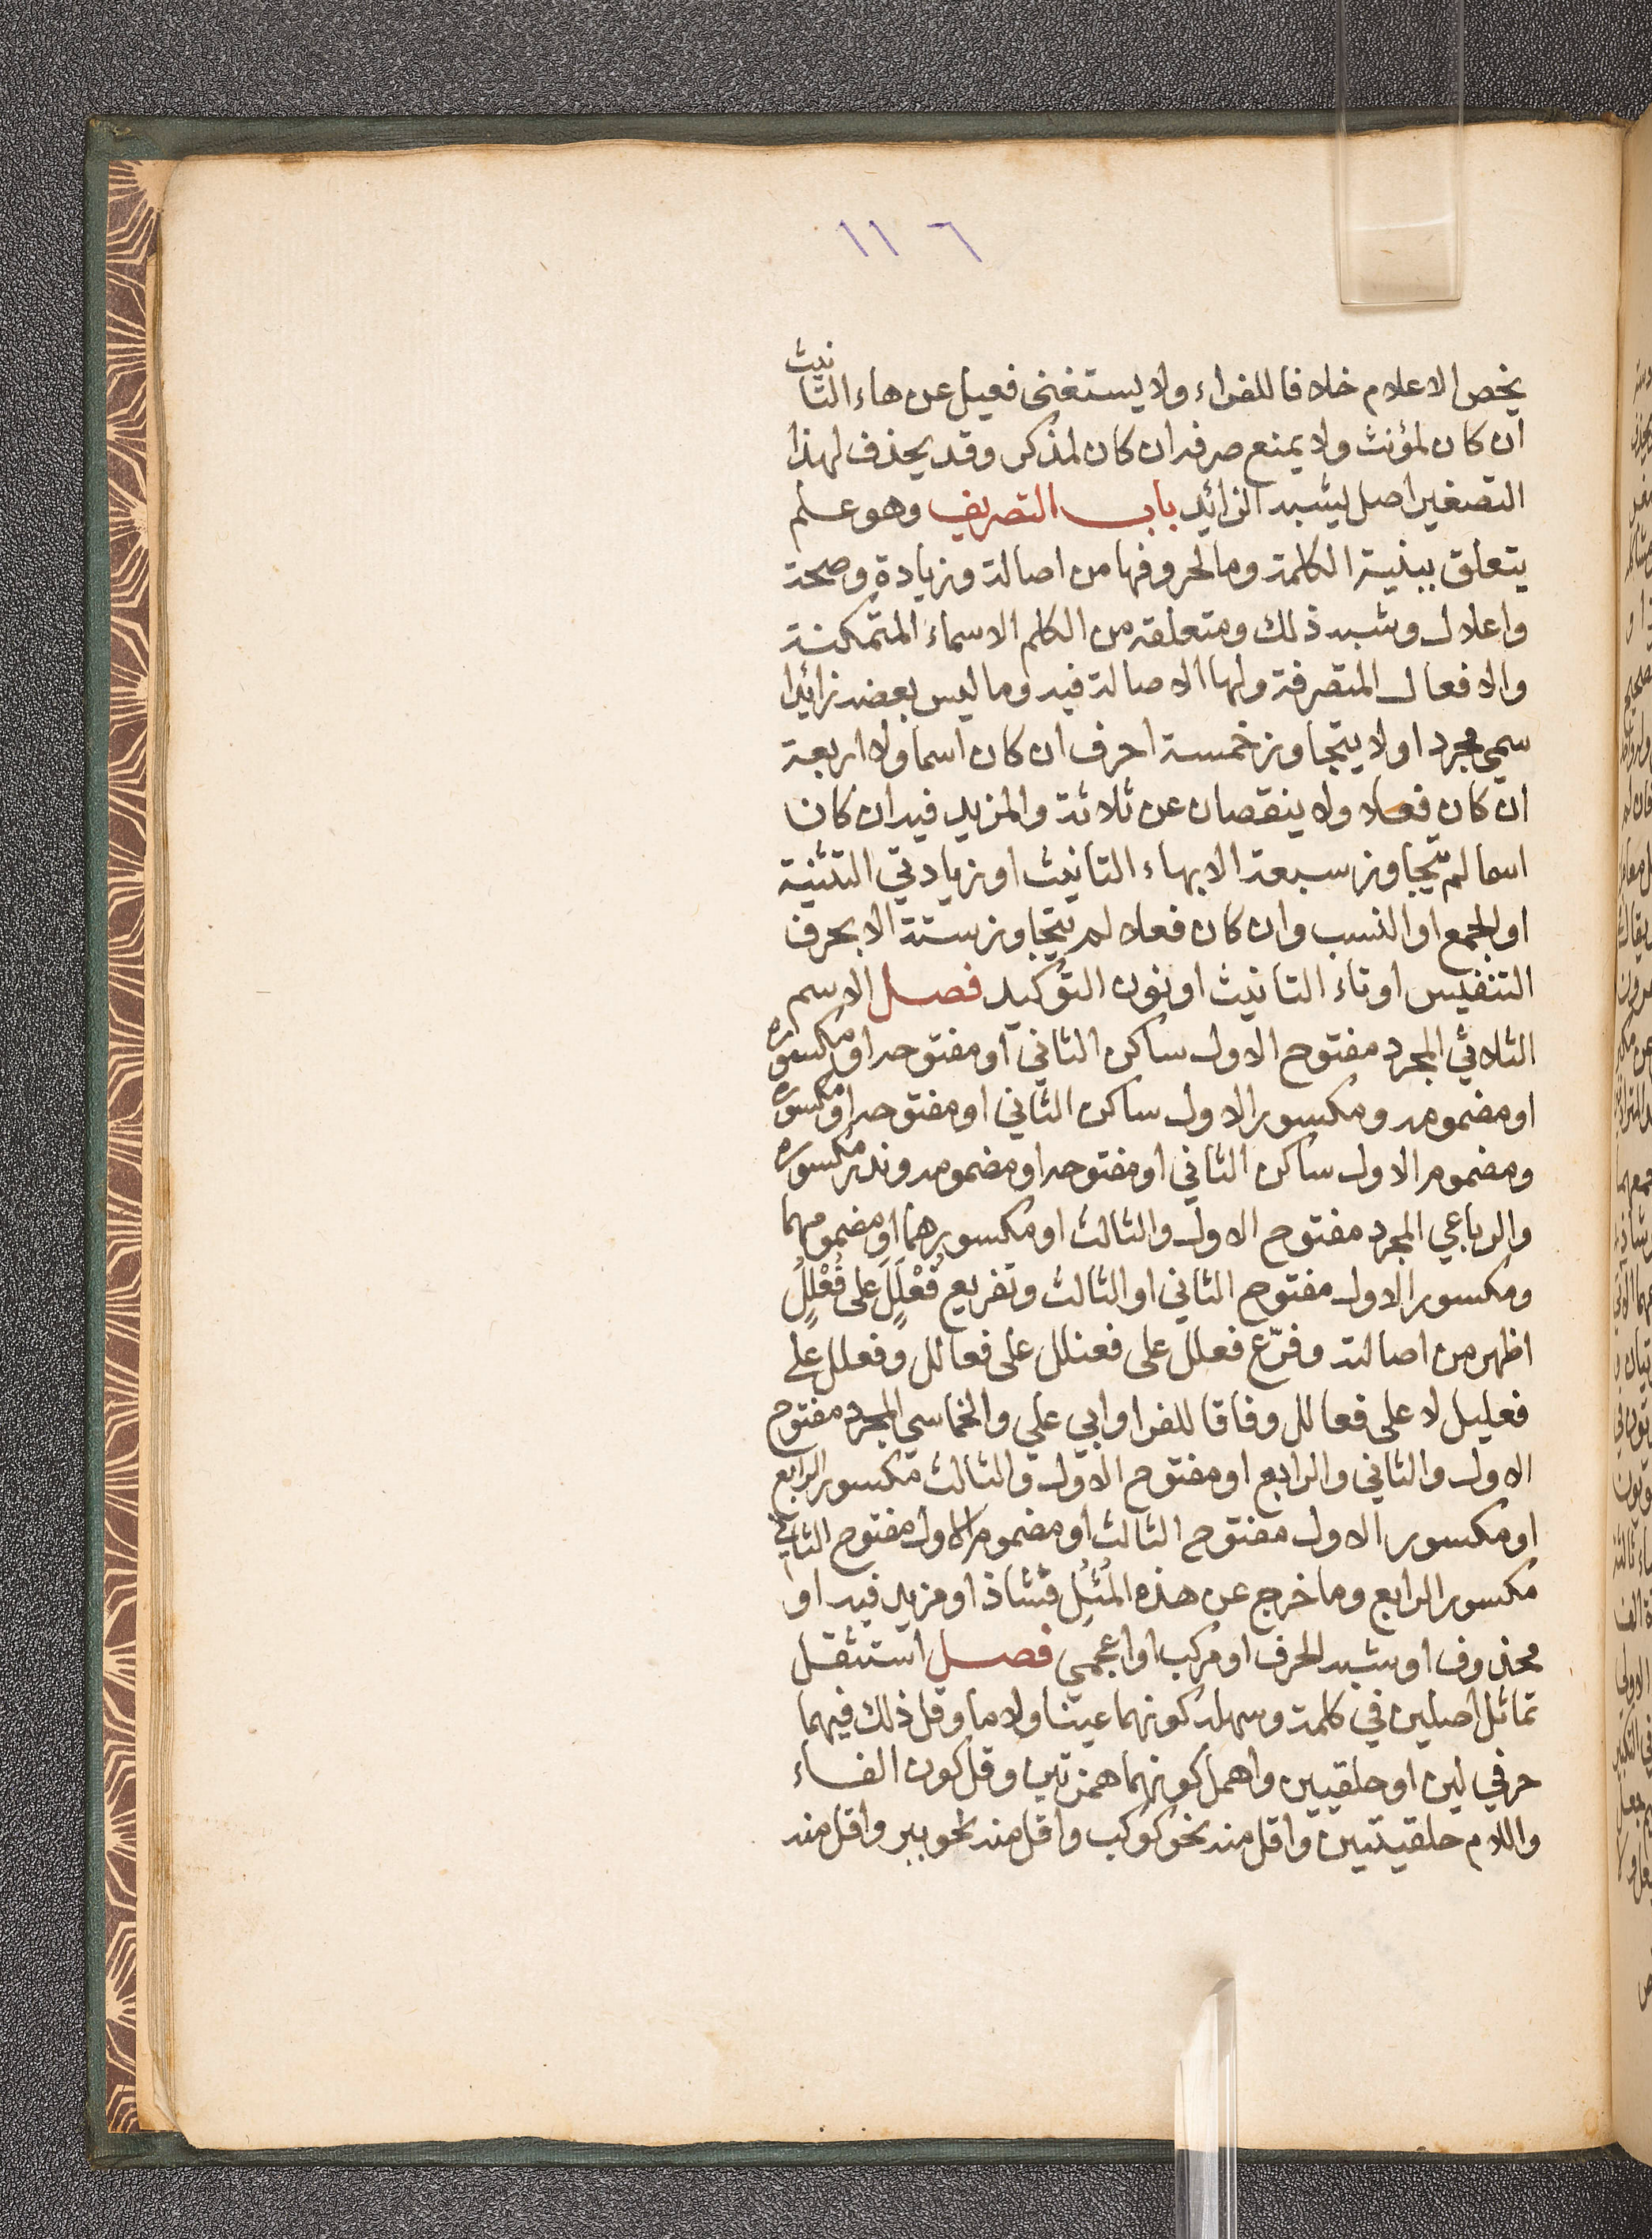 ١١٦
يخص الاعلام خلافا للفراء ولا يستغنى فعيل عن هاء التانيث
ان كان لمؤنث ولا يمنع صرفه ان كان لمذكر وقد يحذف لهذا
التصغير اصل يشبه الزائد باب التصريف وهو علم
يتعلق ببنية الكلمة وما لحروفها من اصالة وزيادة وصحة
واعلال وشبه ذلك ومتعلقه من الكلم الاسماء المتمكنة
والافعال المتصرفة ولها الاصالة فيه وما ليس بعضه زائدا
سمي مجردا ولا يتجاوز خمسة احرف ان كان اسما ولا اربعة
ان كان فعلا ولا ينقصان عن ثلاثة والمزيد فيه ان كان
اسما لم يتجاوز سبعة الا بهاء التانيث او زيادتي التثنية
او الجمع او النسب وان كان فعلا لم يتجاوز ستة الا بحرف
التنفيس او تاء التانيث او نون التوكيد فصل الاسم
الثلاثي المجرد مفتوح الاول ساكن الثاني او مفتوحه او مكسوره
او مضمومه ومكسور الاول ساكن الثاني او مفتوحه او مكسوره
ومضموم الاول ساكن الثاني او مفتوحه او مضمومه وندر مكسوره
والرباعي المجرد مفتوح الاول والثالث او مكسورهما او مضمومهما
ومكسور الاول مفتوح الثاني او الثالث وتفريع فُعْلَلٍ على فُعْلُلٍ
اظهر من اصالته وفرّع فعلل على فعنلل على فعالل وفعلل على
فعليل لا على فعالل وفاقا للفرا وابي علي والخماسي المجرد مفتوح
الاول والثاني والرابع او مفتوح الاول والثالث مكسور الرابع
او مكسور الاول مفتوح الثالث او مضموم الاول مفتوح الثاني
مكسور الرابع وما خرج عن هذه المُثُل فشاذ او مزيد فيه او
محذوف او شبه الحرف او مركب او اعجمي فصل استثقل
تماثل اصلين في كلمة وسهله كونهما عينا ولاما وقل ذلك فيهما
حرفي لين او حلقيين واهمل كونهما همزتين وقل كون الفاء
واللام حلقيتين واقل منه نحو كوكب واقل منه نحو ببر واقل منه